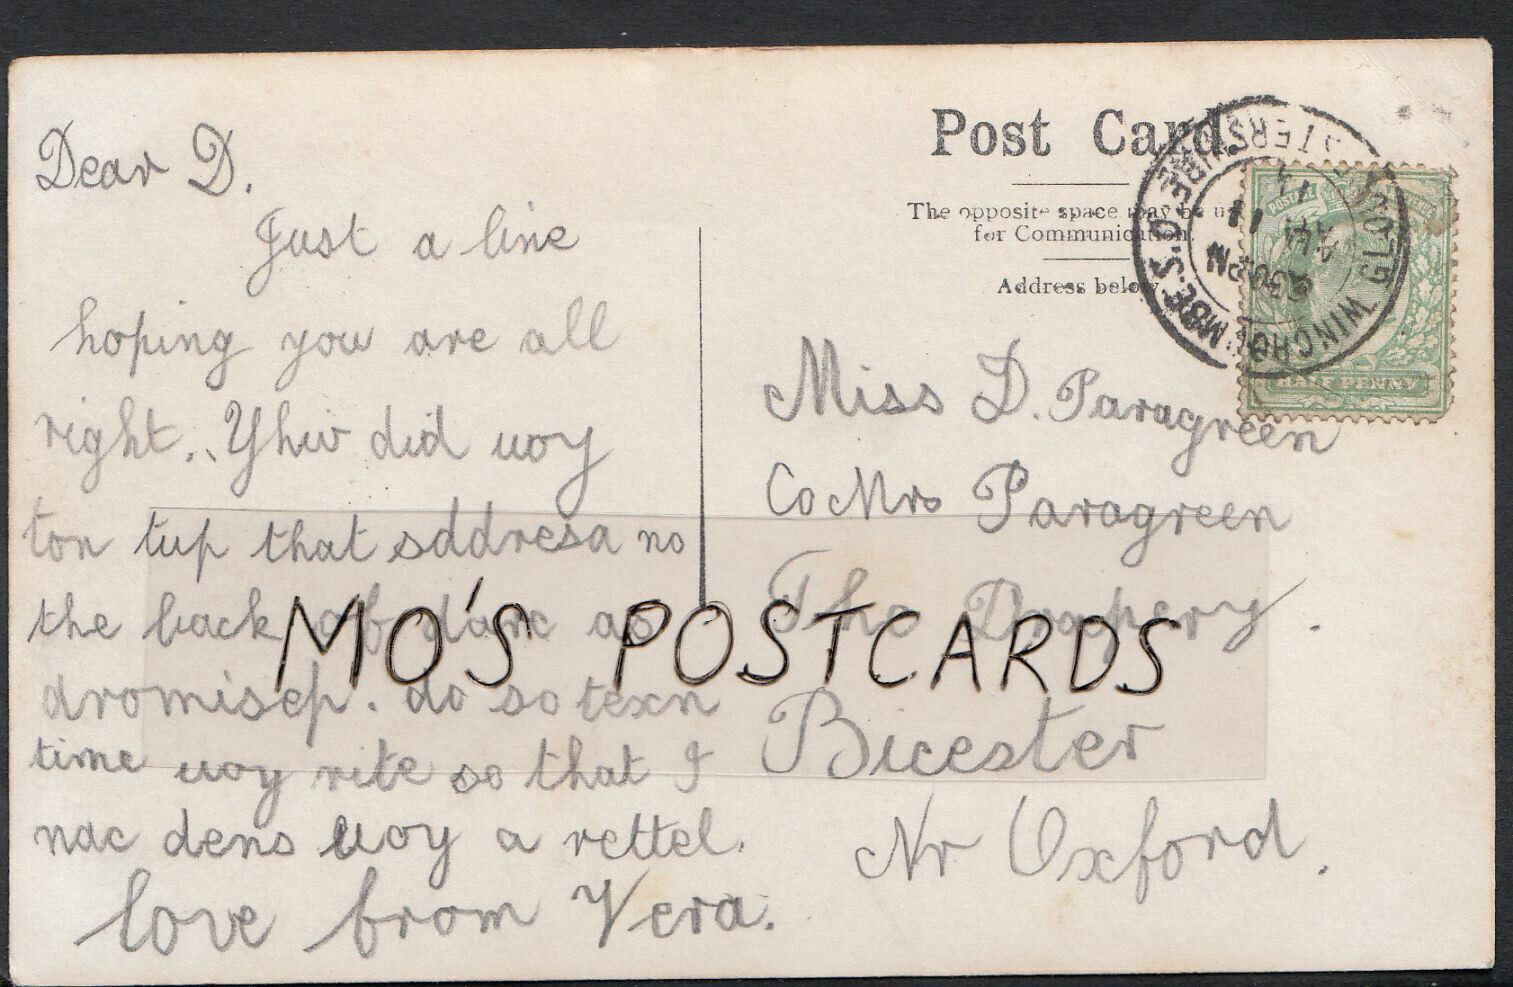 Dear D.
Just a line
hoping you are all
right. Yhw did uoy
ton tup that sddresa no
the back of darc as
dromisep. do so texn
time uoy rite so that I
nac dens uoy a rettel.
love from Vera.
Post Card
The opposite space may be u
for Communication.
Address below
Miss D. Paragreen
Co Mrs Paragreen
The Drapery.
Bicester
Nr Oxford.
MO'S POSTCARDS
WINCHCOMBE S.O.
GLO STERSHIRE
POSTAGE
HALF PENNY